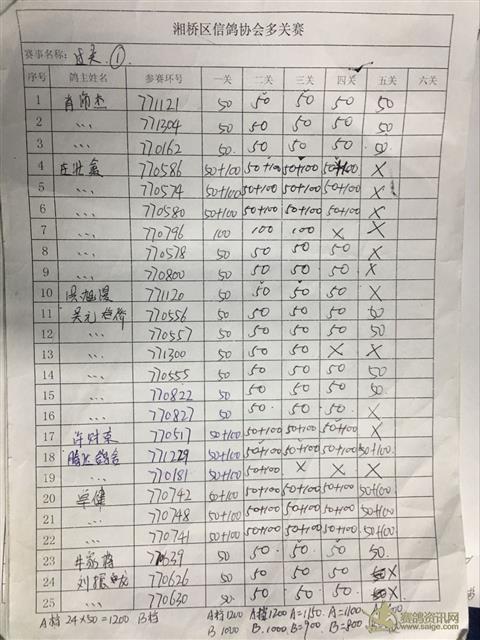 湘桥区信鸽协会多关赛
赛事名称: 过关 ①
序号 鸽主姓名 参赛环号 一关 二关 三关 四关 五关 六关
1 771121 50 50 50 50 50
2 〃 771304 50 50 50 50 50
3 〃 770162 50 50 50 50 50
4 庄壮鑫 770586 50+100 50+100 50+100 50+100 X
5 〃 770574 50+100 50+100 50+100 50+100 X
6 〃 770580 50+100 50+100 50+100 50+100 X
7 〃 770796 100 100 100 X X
8 〃 770578 50 50 50 50 X
9 〃 770800 50 50 50 50 X
10 771120 50 50 50 50 X
11 吴元 770556 50 50 50 50 50
12 〃 770557 50 50 50 50 50
13 〃 771300 50 50 50 X X
14 〃 770555 50 50 50 50 50
15 〃 770822 50 50 50 50 50
16 〃 770827 50 50 50 50 X
17 770517 50+100 50+100 50+100 50+100 X
18 鸽舍 771229 50+100 50+100 50+100 50+100 50+100
19 〃 770181 50+100 50+100 X X X
20 卓健 770742 50+100 50+100 50+100 50+100 50+100
21 〃 770748 50+100 50+100 50+100 50+100 50+100
22 〃 770741 50+100 50+100 50+100 50+100 50+100
23 50 50 50 50 50
24 刘振 770626 50 50 50 50 X
25 〃 770630 50 50 50 50 X
A档 24×50=1200 B档 A档1200 A档1200 A=1150 A=1100
B 1000 B=900 B=800
赛鸽资讯网
www.saige.com